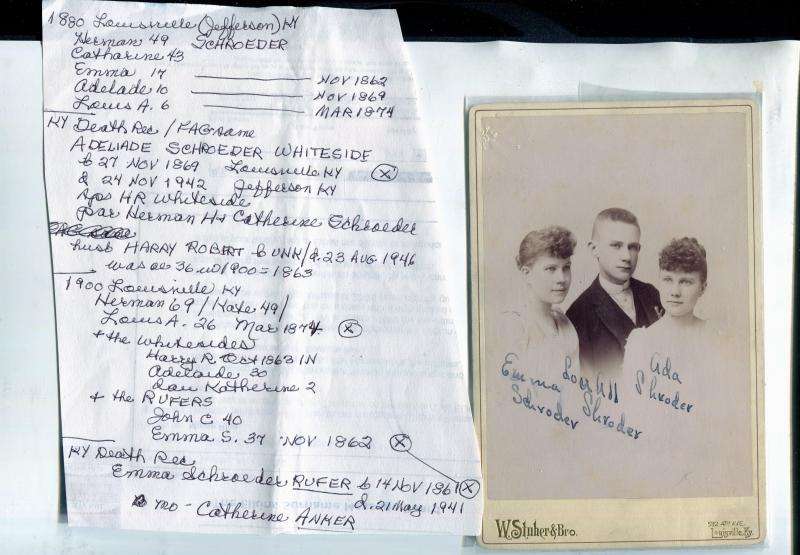 1880 Louisville (Jefferson) KY
Herman 49 SCHROEDER
Catharine 43
Emma 17 NOV 1862
Adelaide 10 NOV 1869
Louis A. 6 MAR 1874
KY Death Rec / FAG same
ADELIADE SCHROEDER WHITESIDE
b 27 NOV 1869 Louisville KY X
d 24 NOV 1942 Jefferson KY
sps HR Whiteside
par Herman H + Catherine Schroeder
husb HARRY ROBERT b UNK/d. 23 AUG 1946
was ae 36 in 1900 = 1863
1900 Louisville KY
Herman 69 / Kate 49/
Louis A. 26 Mar 1874 X
+ the Whitesides
Harry R Oct 1863 IN
Adelaide 30
dau Katherine 2
+ the RUFERS
John C 40
Emma S. 37 NOV 1862 X
KY Death Rec
Emma Schroeder RUFER b 14 NOV 1861 X
d. 21 May 1941
Catherine ANKER
Emma
Schroder
Lou
Shroder
Ada
Shroder
W. Stuber & Bro.
4TH AVE.
Louisville, Ky.